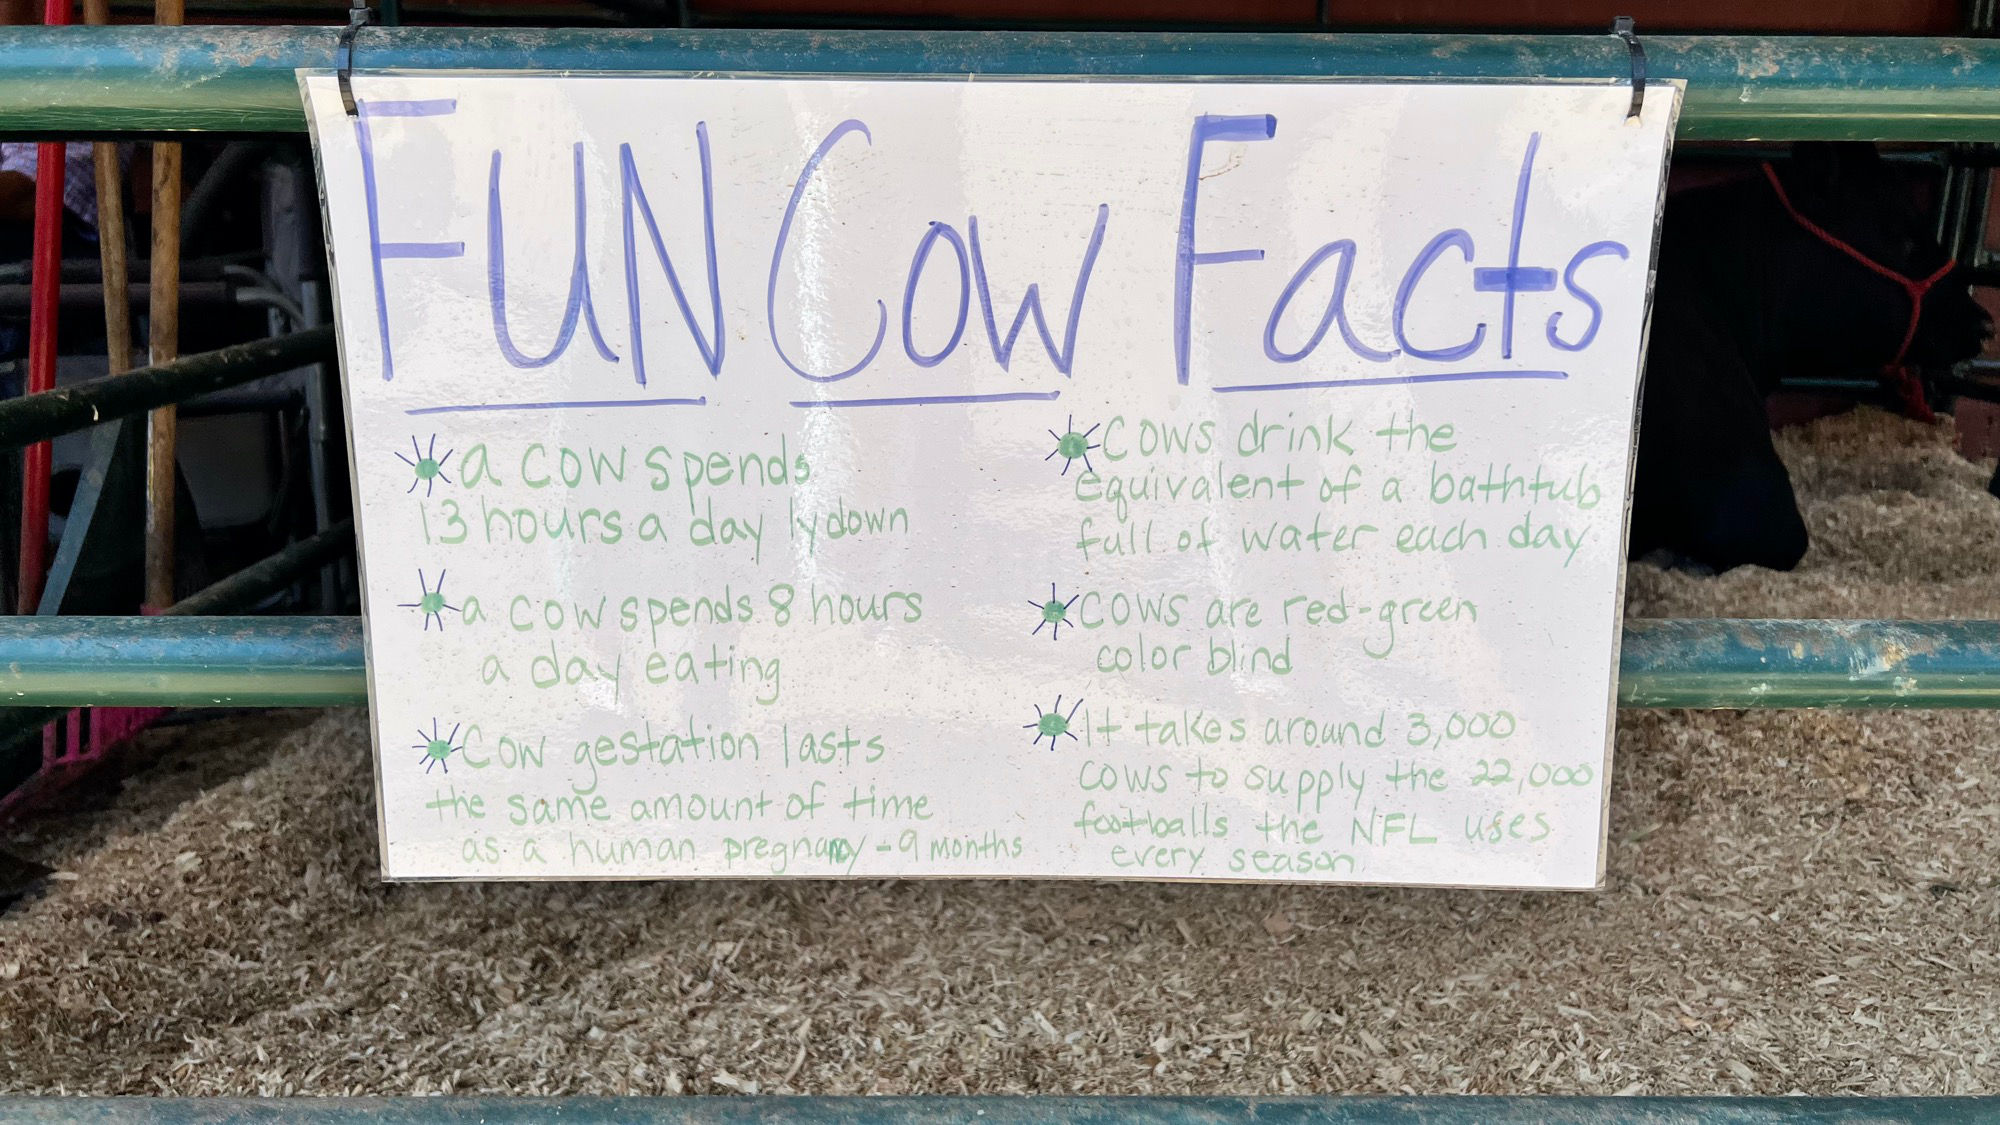 FUN Cow Facts
a cow spends
13 hours a day ly down
a cow spends 8 hours
a day eating
Cow gestation lasts
the same amount of time
as a human pregnancy - 9 months
Cows drink the
equivalent of a bathtub
full of water each day
Cows are red-green
color blind
It takes around 3,000
cows to supply the 22,000
footballs the NFL uses
every season